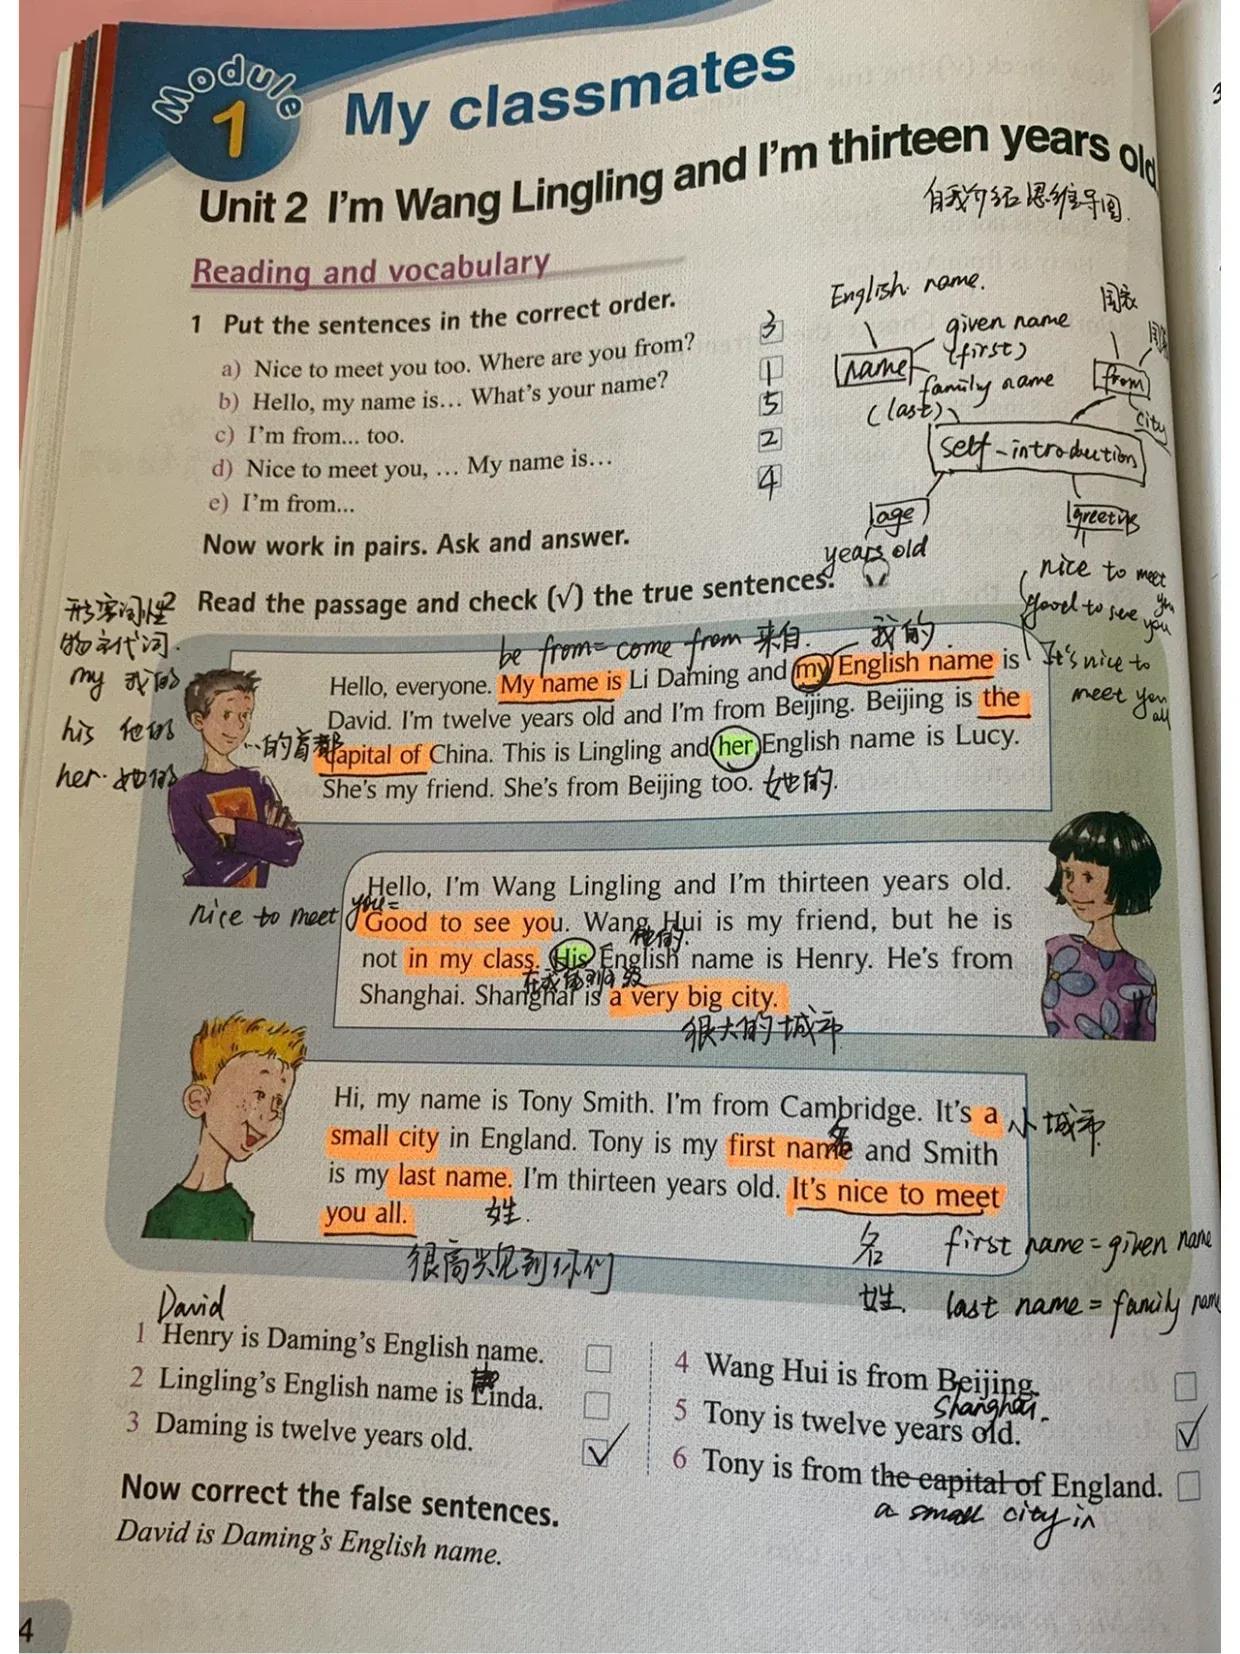 Module 1
My classmates
Unit 2 I'm Wang Lingling and I'm thirteen years old
自我介绍思维导图.
Reading and vocabulary
1 Put the sentences in the correct order.
a) Nice to meet you too. Where are you from? 3
b) Hello, my name is... What's your name? 1
c) I'm from... too. 5
d) Nice to meet you, ... My name is... 2
e) I'm from... 4
Now work in pairs. Ask and answer.
English name.
given name
(first)
name
family name
(last)
国家
from
city
self-introduction
age
years old
greeting
nice to meet you
good to see you
It's nice to
meet you
all
2 Read the passage and check (√) the true sentences.
形容词性
物主代词.
my 我的
his 他的
her. 她的
be from = come from 来自
我的.
Hello, everyone. My name is Li Daming and my English name is
David. I'm twelve years old and I'm from Beijing. Beijing is the
...的首都
capital of China. This is Lingling and her English name is Lucy.
She's my friend. She's from Beijing too. 她的.
Hello, I'm Wang Lingling and I'm thirteen years old.
nice to meet you=
Good to see you. Wang Hui is my friend, but he is
他的.
not in my class. His English name is Henry. He's from
在我的班级
Shanghai. Shanghai is a very big city.
很大的城市
Hi, my name is Tony Smith. I'm from Cambridge. It's a
小城市.
small city in England. Tony is my first name and Smith
名
is my last name. I'm thirteen years old. It's nice to meet
姓.
you all.
很高兴见到你们
名 first name = given name
姓. last name = family name
David
1 Henry is Daming's English name.
2 Lingling's English name is Linda.
3 Daming is twelve years old. √
4 Wang Hui is from Beijing.
Shanghai.
5 Tony is twelve years old. √
6 Tony is from the capital of England.
a small city in
Now correct the false sentences.
David is Daming's English name.
4